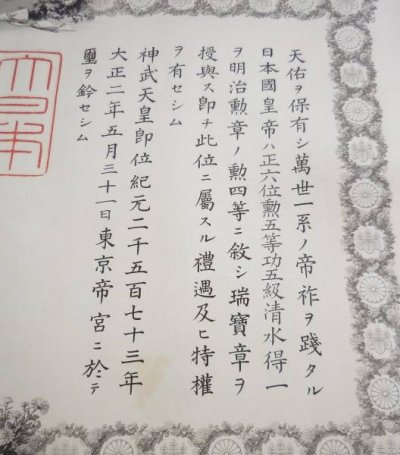 天佑ヲ保有シ萬世一系ノ帝祚ヲ踐タル
日本國皇帝ハ正六位勲五等功五級清水得一
ヲ明治勲章ノ勲四等ニ敘シ瑞寶章ヲ
授與ス即チ此位ニ屬スル禮遇及ヒ特權
ヲ有セシム
神武天皇即位紀元二千五百七十三年
大正二年五月三十一日東京帝宮ニ於テ
璽ヲ鈐セシム